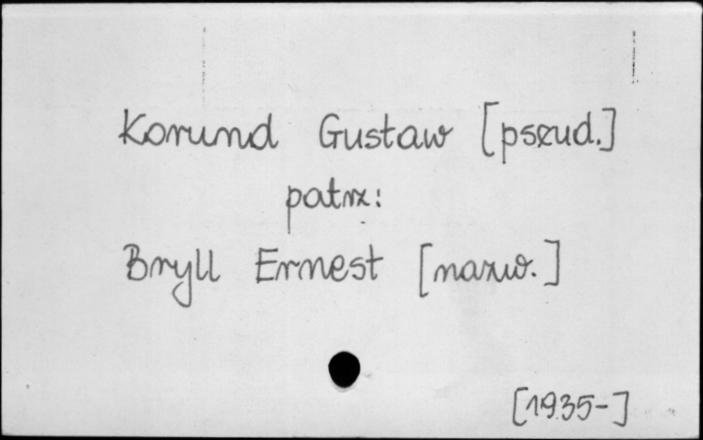 Korund Gustaw [pseud.]
patrz:
Bryll Ernest [nazw.]
[1935-]